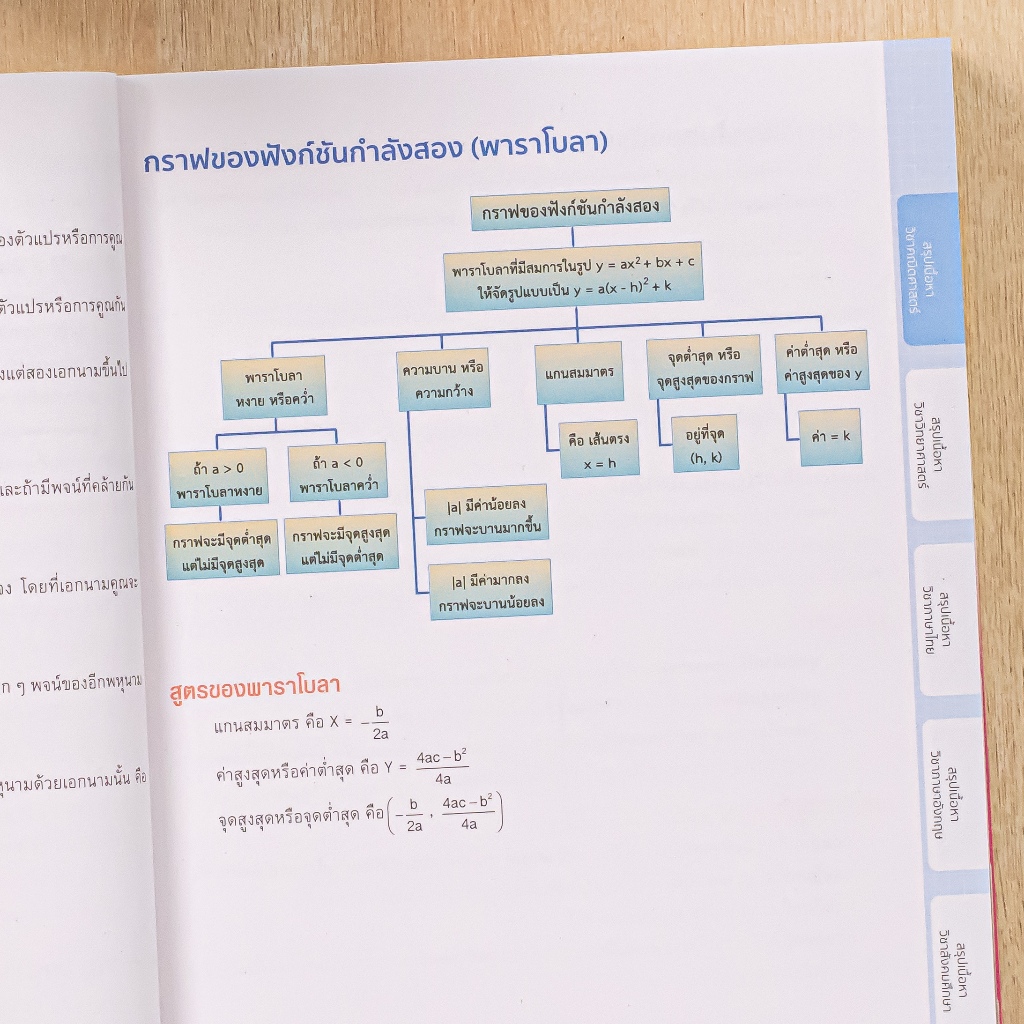 องตัวแปรหรือการคูณ
ตัวแปรหรือการคูณกัน
งแต่สองเอกนามขึ้นไป
และถ้ามีพจน์ที่คล้ายกัน
โดยที่เอกนามคูณจะ
ก ๆ พจน์ของอีกพหุนาม
หุนามด้วยเอกนามนั้น คือ
กราฟของฟังก์ชันกำลังสอง (พาราโบลา)
กราฟของฟังก์ชันกำลังสอง
พาราโบลาที่มีสมการในรูป y = ax² + bx + c
ให้จัดรูปแบบเป็น y = a(x - h)² + k
พาราโบลา
หงาย หรือคว่ำ
ถ้า a > 0
พาราโบลาหงาย
กราฟจะมีจุดต่ำสุด
แต่ไม่มีจุดสูงสุด
ถ้า a < 0
พาราโบลาคว่ำ
กราฟจะมีจุดสูงสุด
แต่ไม่มีจุดต่ำสุด
ความบาน หรือ
ความกว้าง
|a| มีค่าน้อยลง
กราฟจะบานมากขึ้น
|a| มีค่ามากลง
กราฟจะบานน้อยลง
แกนสมมาตร
คือ เส้นตรง
x = h
จุดต่ำสุด หรือ
จุดสูงสุดของกราฟ
อยู่ที่จุด
(h, k)
ค่าต่ำสุด หรือ
ค่าสูงสุดของ y
ค่า = k
สูตรของพาราโบลา
แกนสมมาตร คือ X = −b/2a
ค่าสูงสุดหรือค่าต่ำสุด คือ Y = (4ac − b²)/4a
จุดสูงสุดหรือจุดต่ำสุด คือ (−b/2a , (4ac − b²)/4a)
สรุปเนื้อหา
วิชาคณิตศาสตร์
สรุปเนื้อหา
วิชาวิทยาศาสตร์
สรุปเนื้อหา
วิชาภาษาไทย
สรุปเนื้อหา
วิชาภาษาอังกฤษ
สรุปเนื้อหา
วิชาสังคมศึกษา